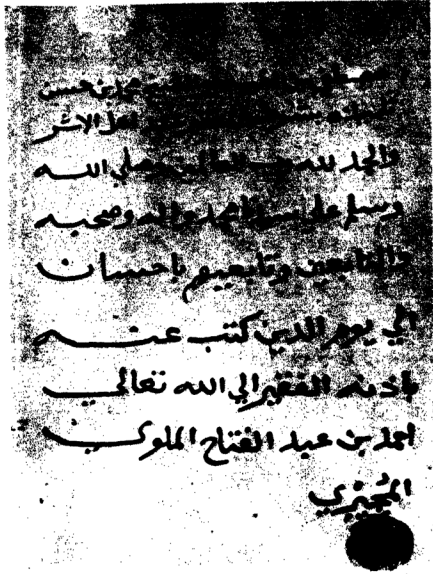 محمد بن حسن
اهل الاثر
والحمد لله رب العالمين وصلي الله
وسلم علي سيدنا محمد واله وصحبه
والتابعين وتابعيهم باحسان
الي يوم الدين كتب عنه
باذنه الفقير الي الله تعالي
احمد بن عبد الفتاح الملوي
المجيري